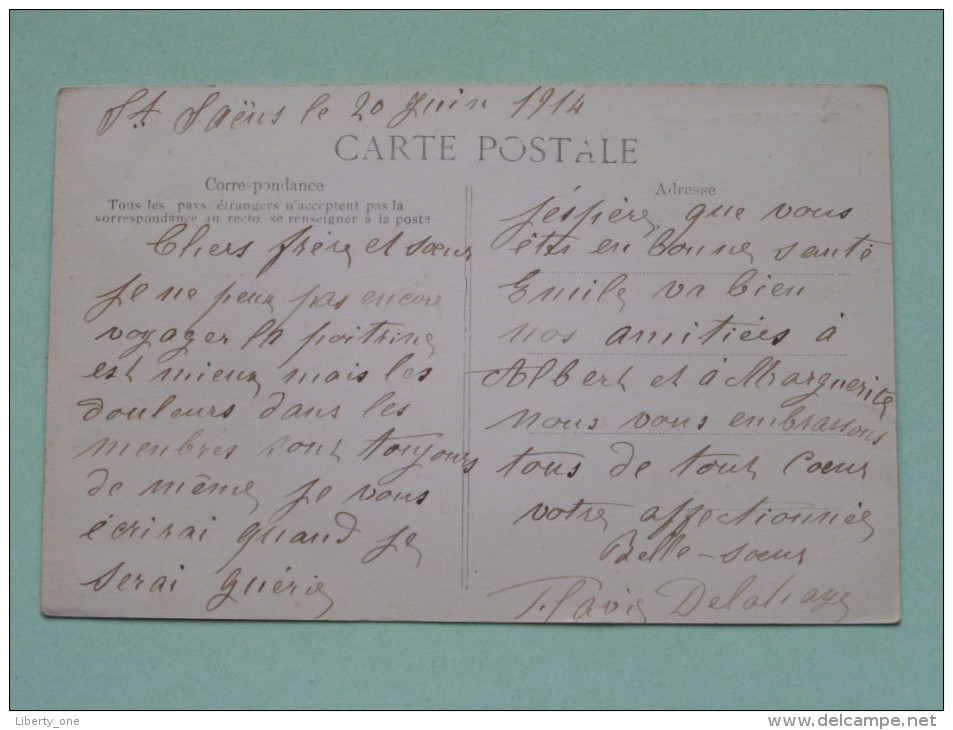 St Saëns le 20 Juin 1914
CARTE POSTALE
Correspondance
Tous les pays étrangers n'acceptent pas la
correspondance au recto, se renseigner à la poste
Chers frère et sœur
je ne peux pas encore
voyager la poitrine
est mieux mais les
douleurs dans les
menbres sont toujours
de même je vous
écrirai quand je
serai guérie
Adresse
j'éspère que vous
êtes en bonne santé
Emile va bien
nos amitiées à
Albert et à Marguerite
nous vous embrassons
tous de tout cœur
votre affectionnée
Belle-sœur
Flavie Delahaye
Liberty_one
www.delcampe.net